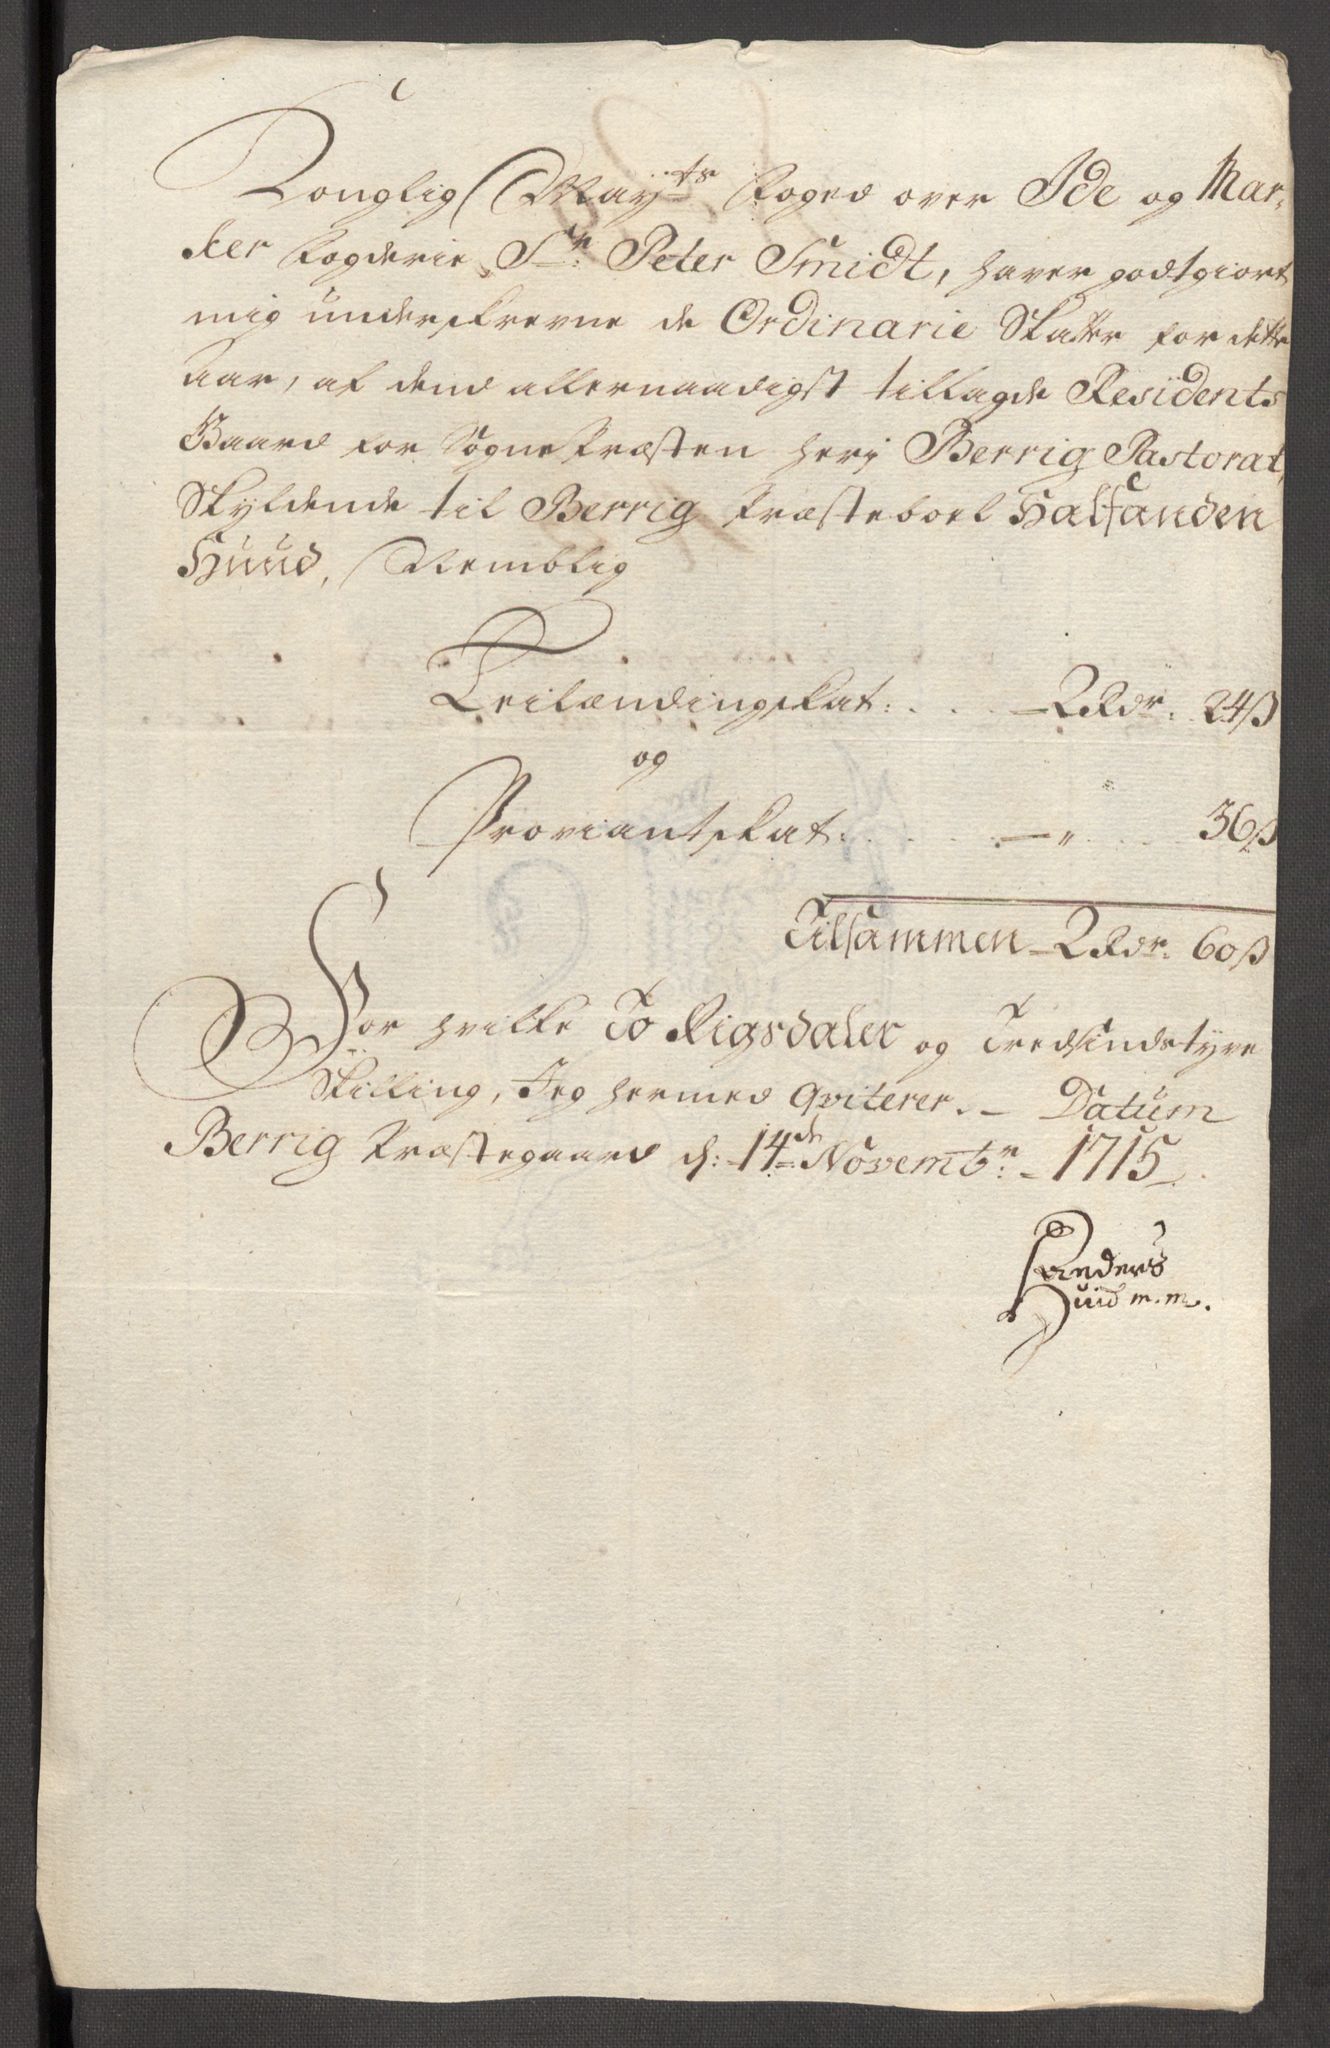 Konglig Mayts Foged over Ide og Mar-
ker Fogderie Sr: Peter Smidt, haver godtgiort
mig underskrevne de Ordinarie Skatter for dette
Aar, af dend allernaadigst tillagde Residents
Gaard for SognePræsten herj Berrig Pastorat,
Skyldende til Berrig Præsteboel Halfanden
Huud, Nemblig
Leilændingskat: . . . — 2 Rdr: 24 ß
og
Proviantskat: . . . . . — " . . . . 36 ß
Tilsammen — 2 Rdr: 60 ß
For hvilke To Rigsdaler og Tredsindstyve
Skilling, Jeg hermed Qviterer. — Datum
Berrig Præstegaard d: 14de Novembr: — 1715
Anders
Huid m.m.